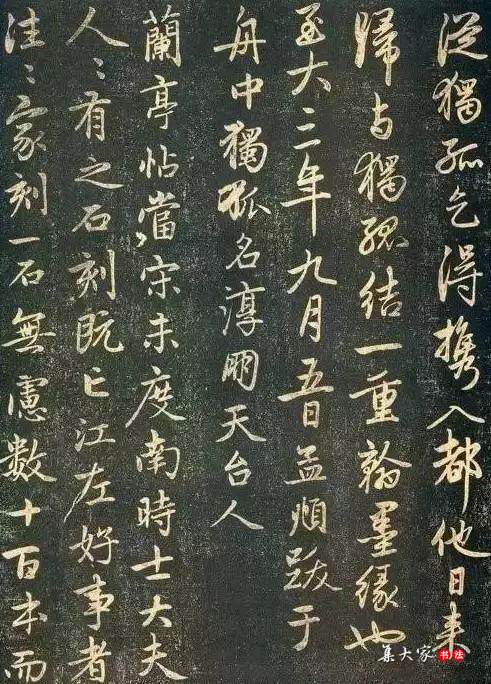 從獨孤乞得攜入都他日来
歸与獨孤结一重翰墨緣也
至大三年九月五日孟頫跋于
舟中獨孤名淳朋天台人
蘭亭帖當宋未度南時士大夫
人〻有之石刻既亡江左好事者
往〻家刻一石無慮数十百本而
集大家书法